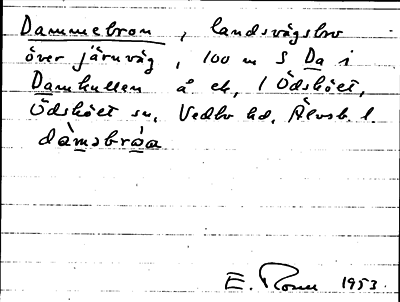 Dammebron, landsvägsbro
över järnväg, 100 m S Da i
Damkullen å ek. 1 Ödsköet,
Ödsköet sn, Vedbo hd, Älvsb. l.
dàmsbróa
E. Rosen 1953